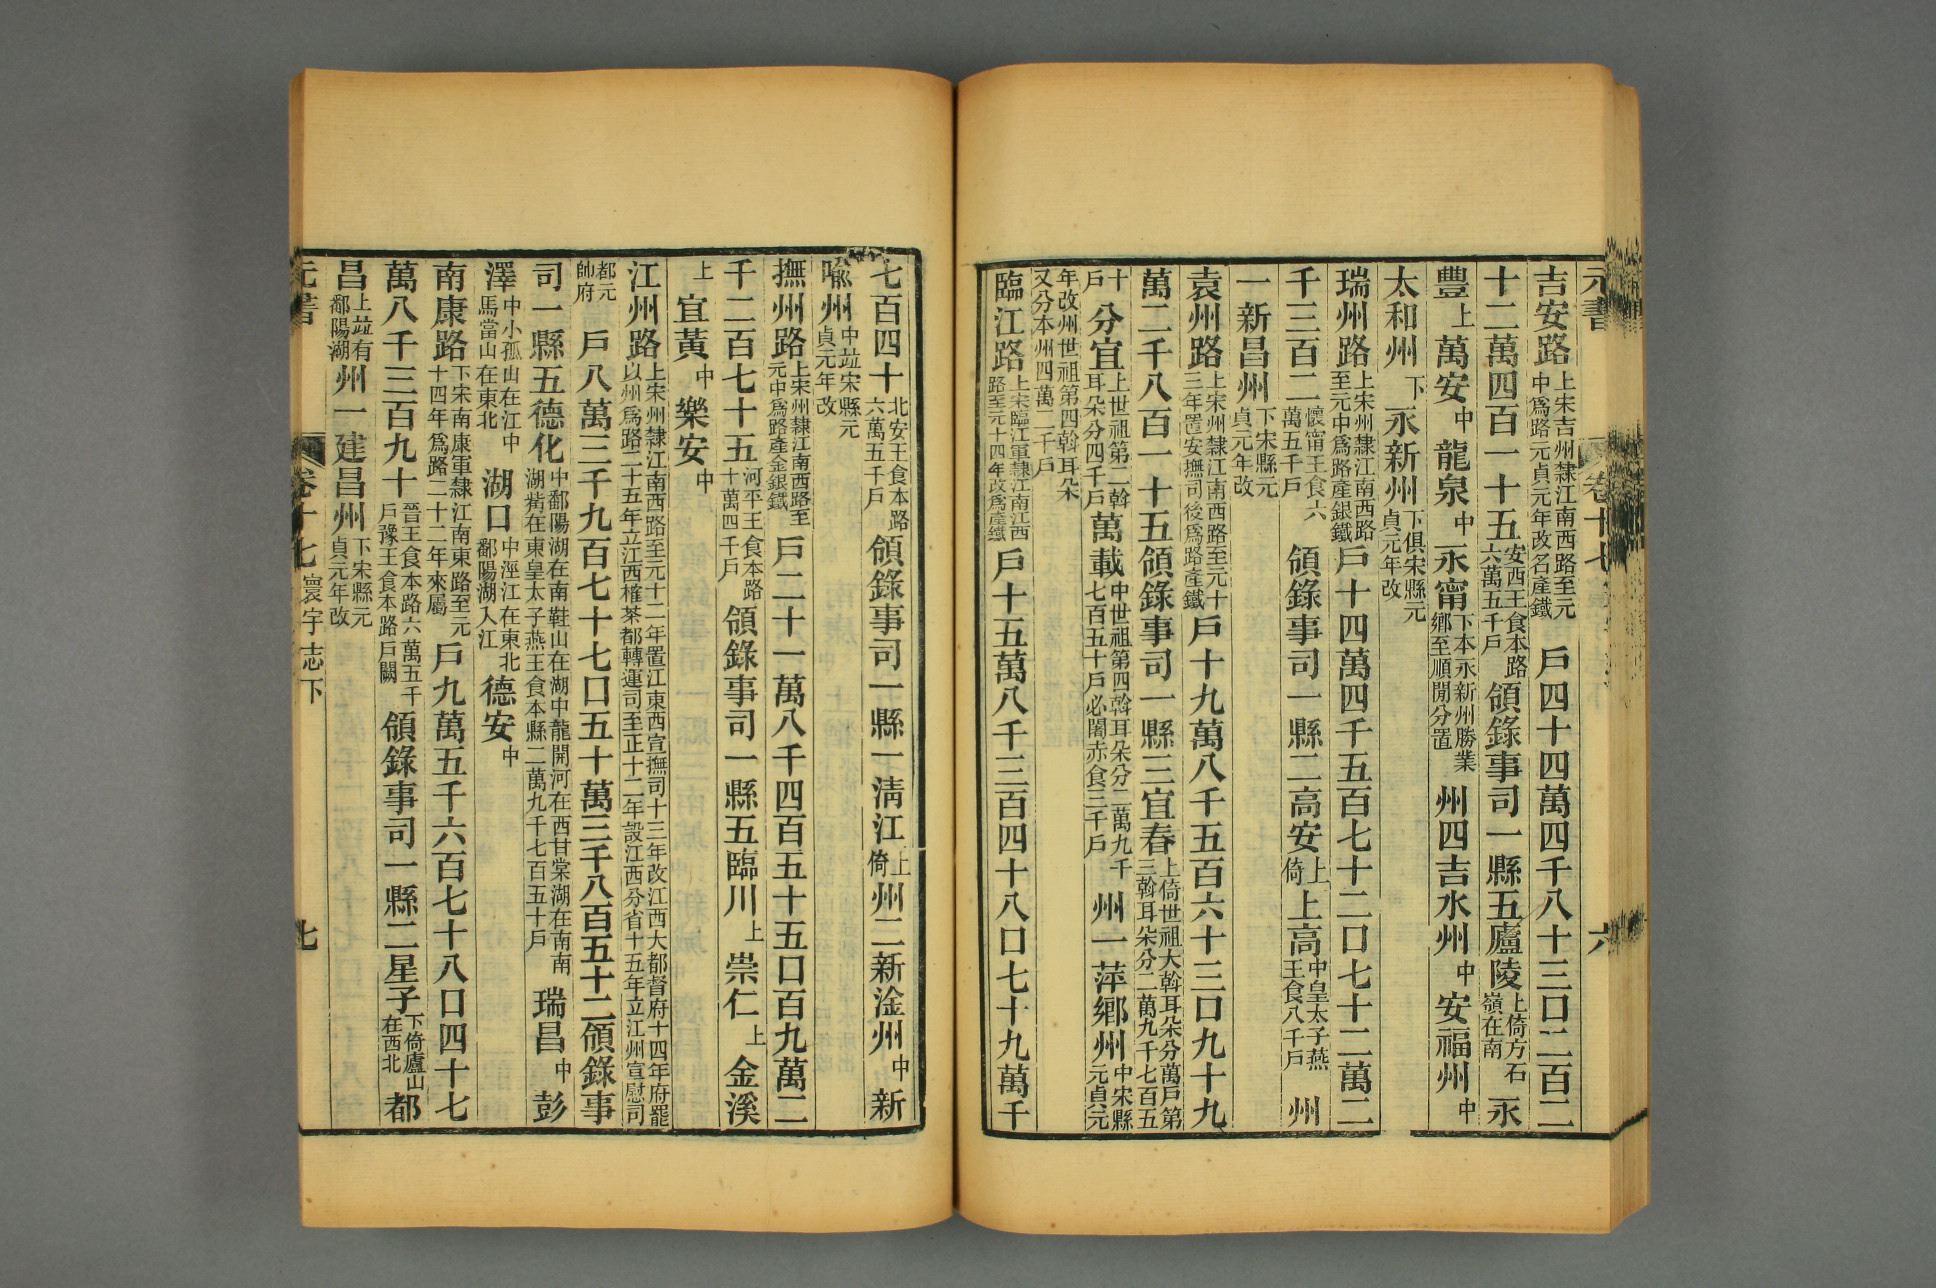 元書
卷十七
六
吉安路上宋吉州隸江南西路至元中爲路元貞元年改名產鐵戶四十四萬四千八十三口二百二
十二萬四百一十五安西王食本路六萬五千戶領錄事司一縣五廬陵上倚方石嶺在南永
豐上萬安中龍泉中永甯下本永新州勝業鄉至順閒分置州四吉水州中安福州中
太和州下永新州下俱宋縣元貞元年改
瑞州路上宋州隸江南西路至元中爲路產銀鐵戶十四萬四千五百七十二口七十二萬二
千三百二懷甯王食六萬五千戶領錄事司一縣二高安上倚上高中皇太子燕王食八千戶州
一新昌州下宋縣元貞元年改
袁州路上宋州隸江南西路至元十三年置安撫司後爲路產鐵戶十九萬八千五百六十三口九十九
萬二千八百一十五領錄事司一縣三宜春上倚世祖大斡耳朵分萬戶第三斡耳朵分二萬九千七百五
十戶分宜上世祖第二斡耳朵分四千戶萬載中世祖第四斡耳朵分二萬九千七百五十戶必闍赤食三千戶州一萍鄉州中宋縣元貞元
年改州世祖第四斡耳朵又分本州四萬二千戶
臨江路上宋臨江軍隸江南江西路至元十四年改爲產鐵戶十五萬八千三百四十八口七十九萬千
七百四十北安王食本路六萬五千戶領錄事司一縣一淸江上倚州二新淦州中新
喩州中竝宋縣元貞元年改
撫州路上宋州隸江南西路至元中爲路產金銀鐵戶二十一萬八千四百五十五口百九萬二
千二百七十五河平王食本路十萬四千戶領錄事司一縣五臨川上崇仁上金溪
上宜黃中樂安中
江州路上宋州隸江南西路至元十二年置江東西宣撫司十三年改江西大都督府十四年府罷以州爲路二十五年立江西榷茶都轉運司至正十二年設江西分省十五年立江州宣慰司
都元帥府戶八萬三千九百七十七口五十萬三千八百五十二領錄事
司一縣五德化中鄱陽湖在南鞋山在湖中龍開河在西甘棠湖在南南湖觜在東皇太子燕王食本縣二萬九千七百五十戶瑞昌中彭
澤中小孤山在江中馬當山在東北湖口中涇江在東北鄱陽湖入江德安中
南康路下宋南康軍隸江南東路至元十四年爲路二十二年來屬戶九萬五千六百七十八口四十七
萬八千三百九十晉王食本路六萬五千戶豫王食本路戶闕領錄事司一縣二星子下倚廬山在西北都
昌上竝有鄱陽湖州一建昌州下宋縣元貞元年改
元書
卷十七寰宇志下
七